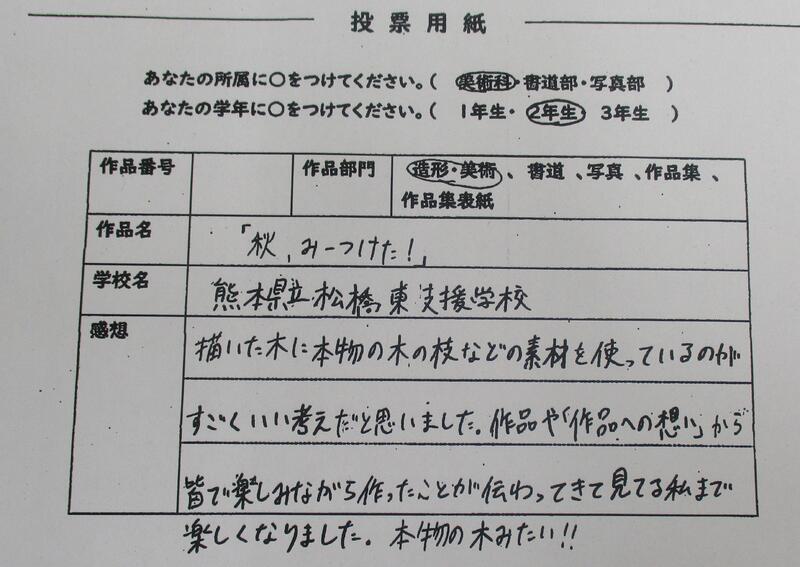 投票用紙
あなたの所属に○をつけてください。( 美術科・書道部・写真部 )
あなたの学年に○をつけてください。( 1年生・2年生・3年生 )
作品番号 作品部門 造形・美術、書道、写真、作品集、
作品集表紙
作品名 「秋,みーつけた!」
学校名 熊本県立松橋東支援学校
感想 描いた木に本物の木の枝などの素材を使っているのが
すごくいい考えだと思いました。作品や「作品への想い」から
皆で楽しみながら作ったことが伝わってきて見てる私まで
楽しくなりました。本物の木みたい!!